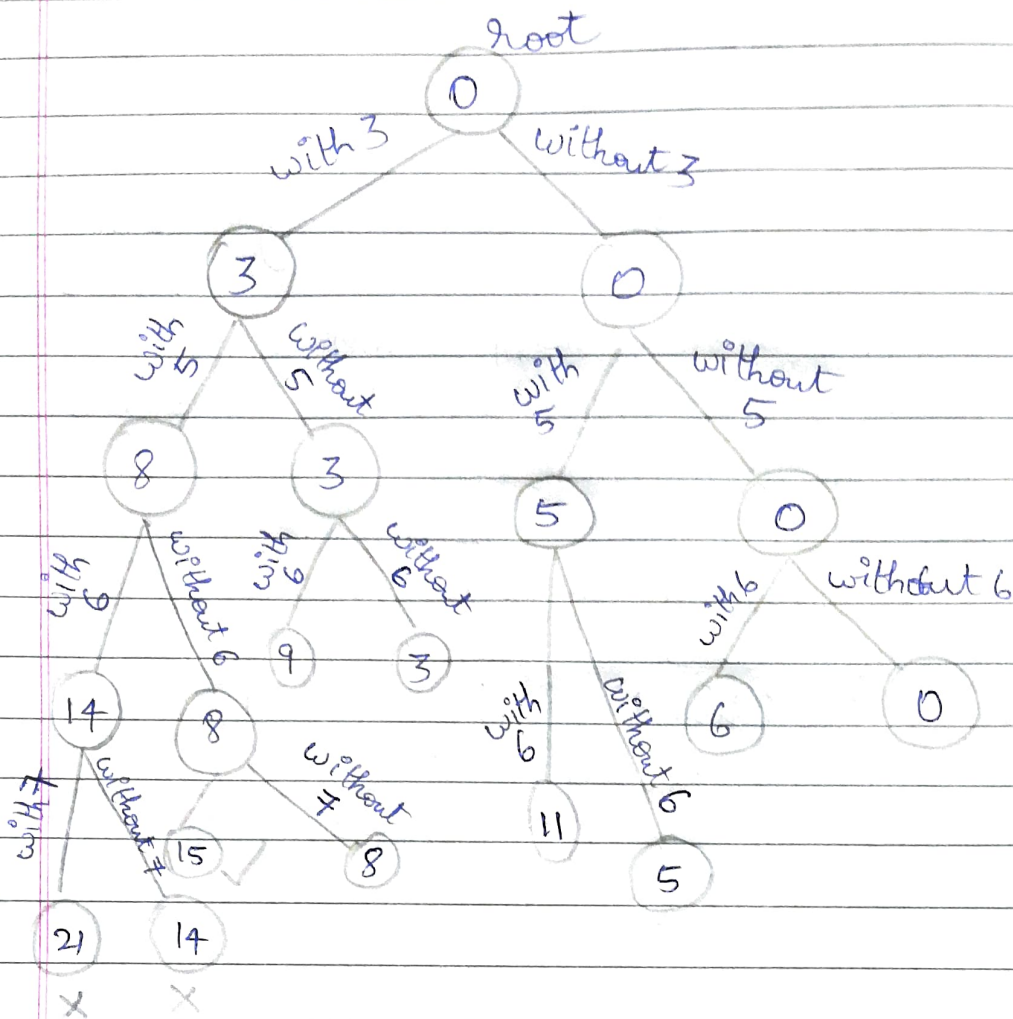 root
0
with 3
without 3
3
0
with
5
without
5
with
5
without
5
8
3
5
0
with
6
without 6
with
6
without
6
with 6
without 6
9
3
with
6
without 6
14
8
6
0
with 7
without 7
without
7
15
8
11
5
21
14
x
x